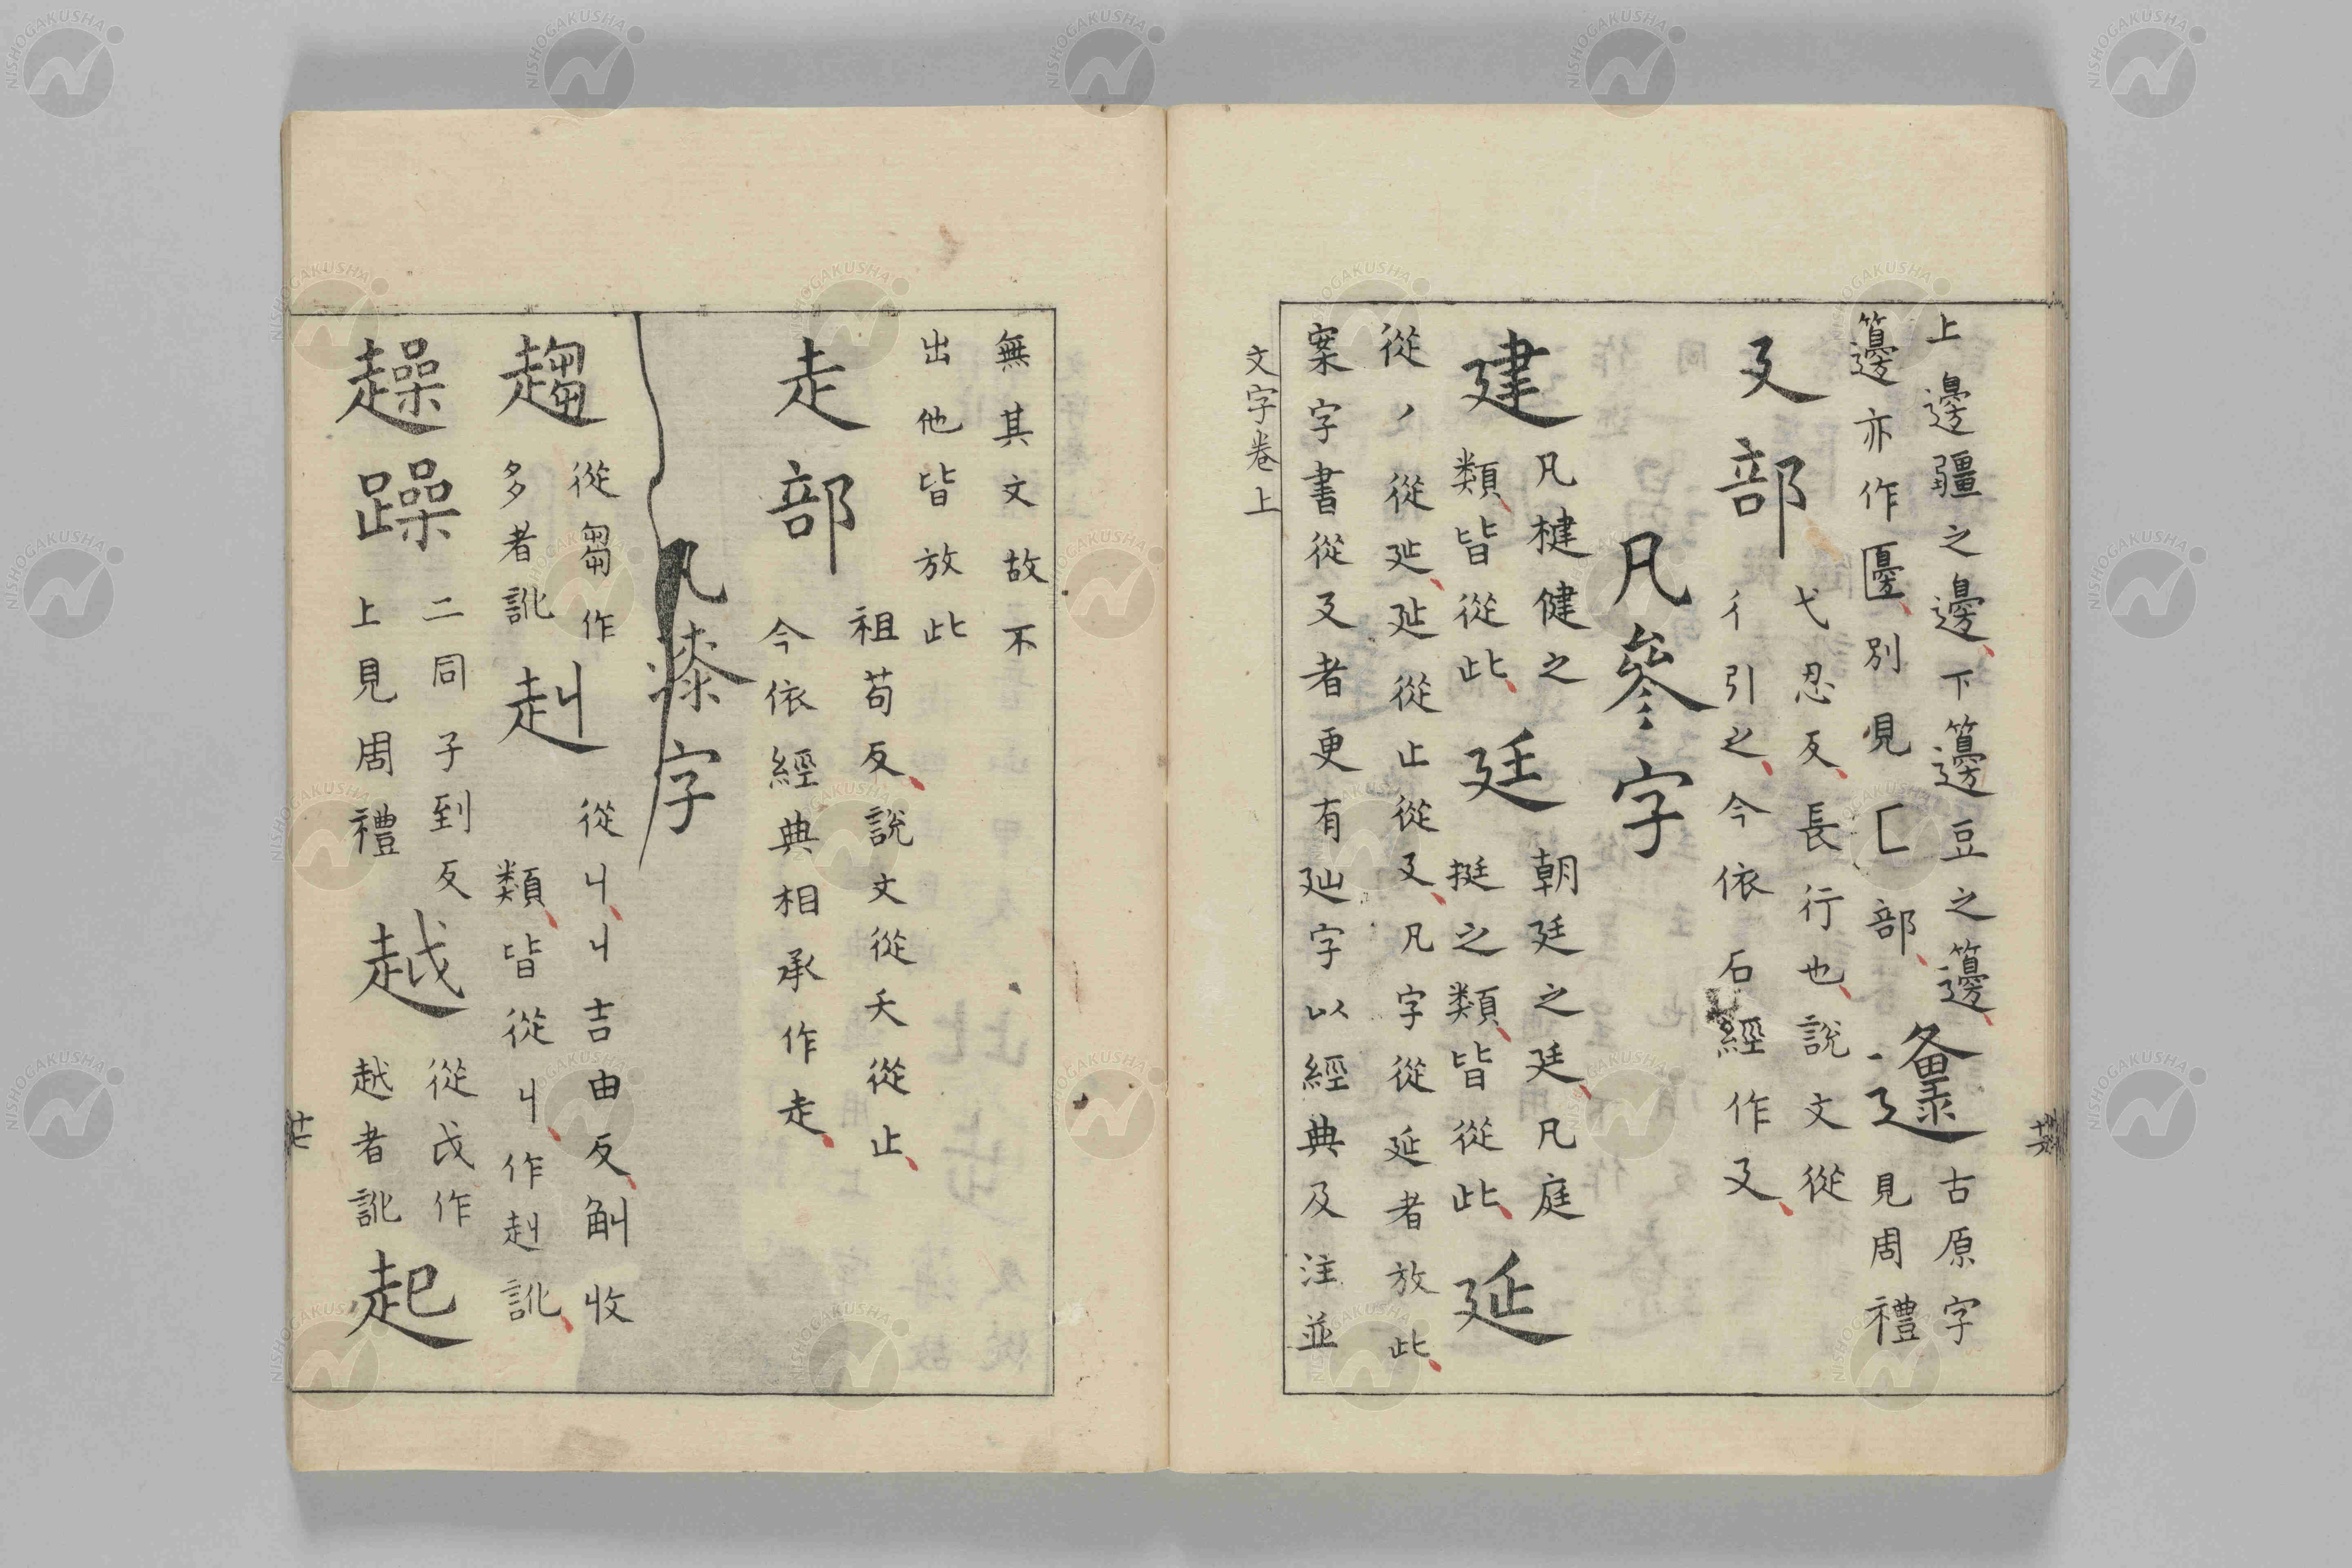 上邊疆之邊下籩豆之籩
籩亦作匽別見匚部
邍
古原字
見周禮
廴部
弋忍反長行也說文從
彳引之今依石經作廴
凡參字
建
凡楗健之
類皆從此
廷
朝廷之廷凡庭
挺之類皆從此
延
從丿從㢟㢟從止從廴凡字從延者放此
案字書從廴者更有𢌕字以經典及注並
文字卷上
無其文故不
出他皆放此
走部
祖苟反說文從夭從止
今依經典相承作走
凡漆字
趨
從芻作
多者訛
赳
從丩丩吉由反斛收
類皆從丩作赳訛
趮躁
二同子到反
上見周禮
越
從戉作
越者訛
起
NISHOGAKUSHA